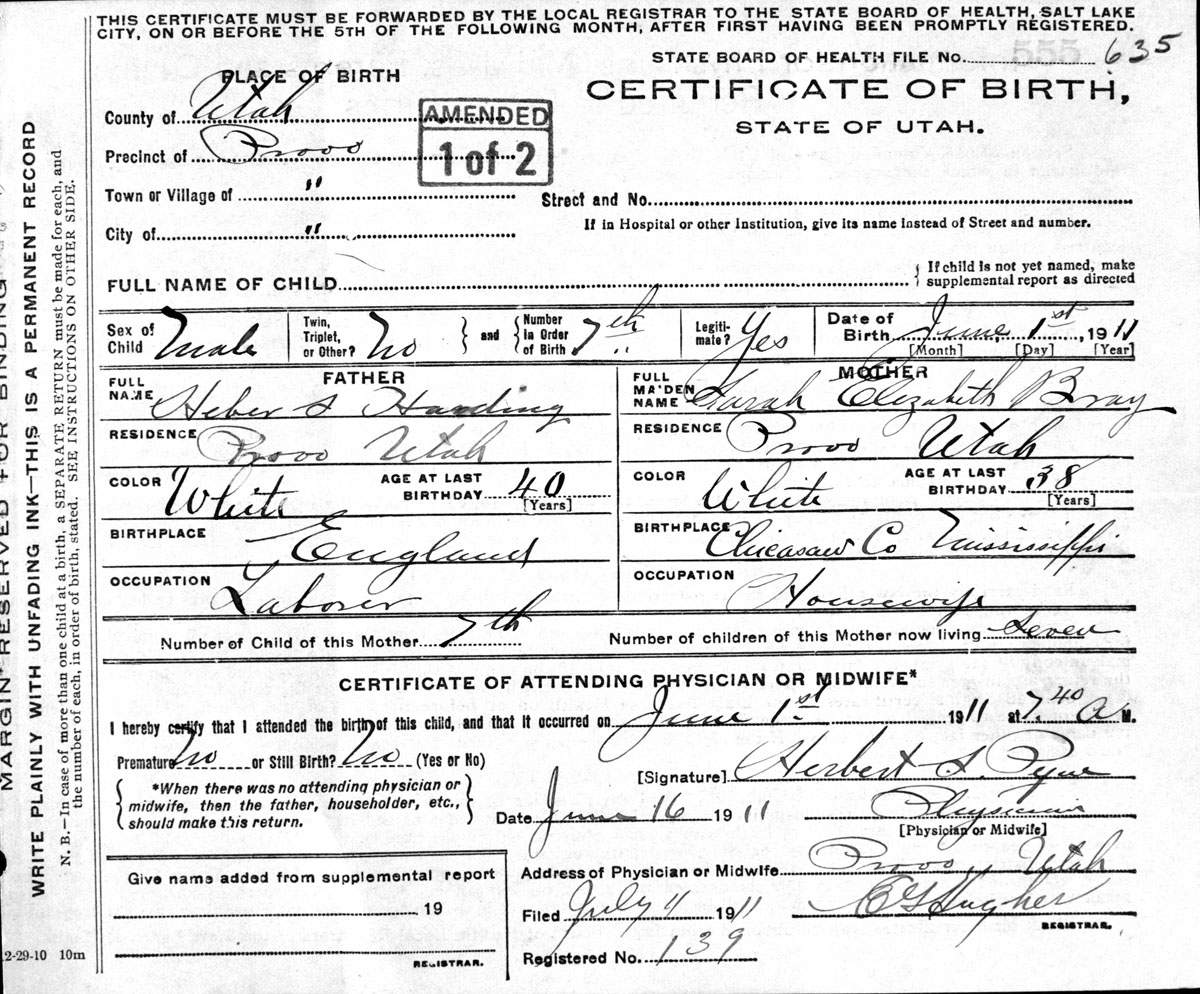 THIS CERTIFICATE MUST BE FORWARDED BY THE LOCAL REGISTRAR TO THE STATE BOARD OF HEALTH, SALT LAKE
CITY, ON OR BEFORE THE 5TH OF THE FOLLOWING MONTH, AFTER FIRST HAVING BEEN PROMPTLY REGISTERED.
STATE BOARD OF HEALTH FILE No. 635
PLACE OF BIRTH
CERTIFICATE OF BIRTH,
STATE OF UTAH.
County of Utah
AMENDED
1 of 2
Precinct of Provo
Town or Village of "
Street and No.
City of "
If in Hospital or other Institution, give its name instead of Street and number.
FULL NAME OF CHILD
{ If child is not yet named, make
supplemental report as directed
Sex of Child Male
Twin, Triplet, or Other? No } and { Number in Order of Birth 7th
Legitimate? Yes
Date of Birth June 1st, 1911
[Month] [Day] [Year]
FATHER
FULL NAME Heber S Harding
RESIDENCE Provo Utah
COLOR White AGE AT LAST BIRTHDAY 40
[Years]
BIRTHPLACE England
OCCUPATION Laborer
MOTHER
FULL MAIDEN NAME Sarah Elizabeth Bray
RESIDENCE Provo Utah
COLOR White AGE AT LAST BIRTHDAY 38
[Years]
BIRTHPLACE Chicasaw Co Mississippi
OCCUPATION Housewife
Number of Child of this Mother 7th Number of children of this Mother now living Seven
CERTIFICATE OF ATTENDING PHYSICIAN OR MIDWIFE*
I hereby certify that I attended the birth of this child, and that it occurred on June 1st 1911 at 7.40 A M.
Premature No or Still Birth? No (Yes or No)
*When there was no attending physician or
midwife, then the father, householder, etc.,
should make this return.
[Signature] Herbert S. Pyne
Date June 16 1911 Physician
[Physician or Midwife]
Give name added from supplemental report
19
REGISTRAR.
Address of Physician or Midwife Provo Utah
Filed July 4 1911
REGISTRAR.
Registered No. 139
2-29-10 10m
MARGIN RESERVED FOR BINDING
WRITE PLAINLY WITH UNFADING INK—THIS IS A PERMANENT RECORD
N. B.—In case of more than one child at a birth, a SEPARATE RETURN must be made for each, and
the number of each, in order of birth, stated. SEE INSTRUCTIONS ON OTHER SIDE.